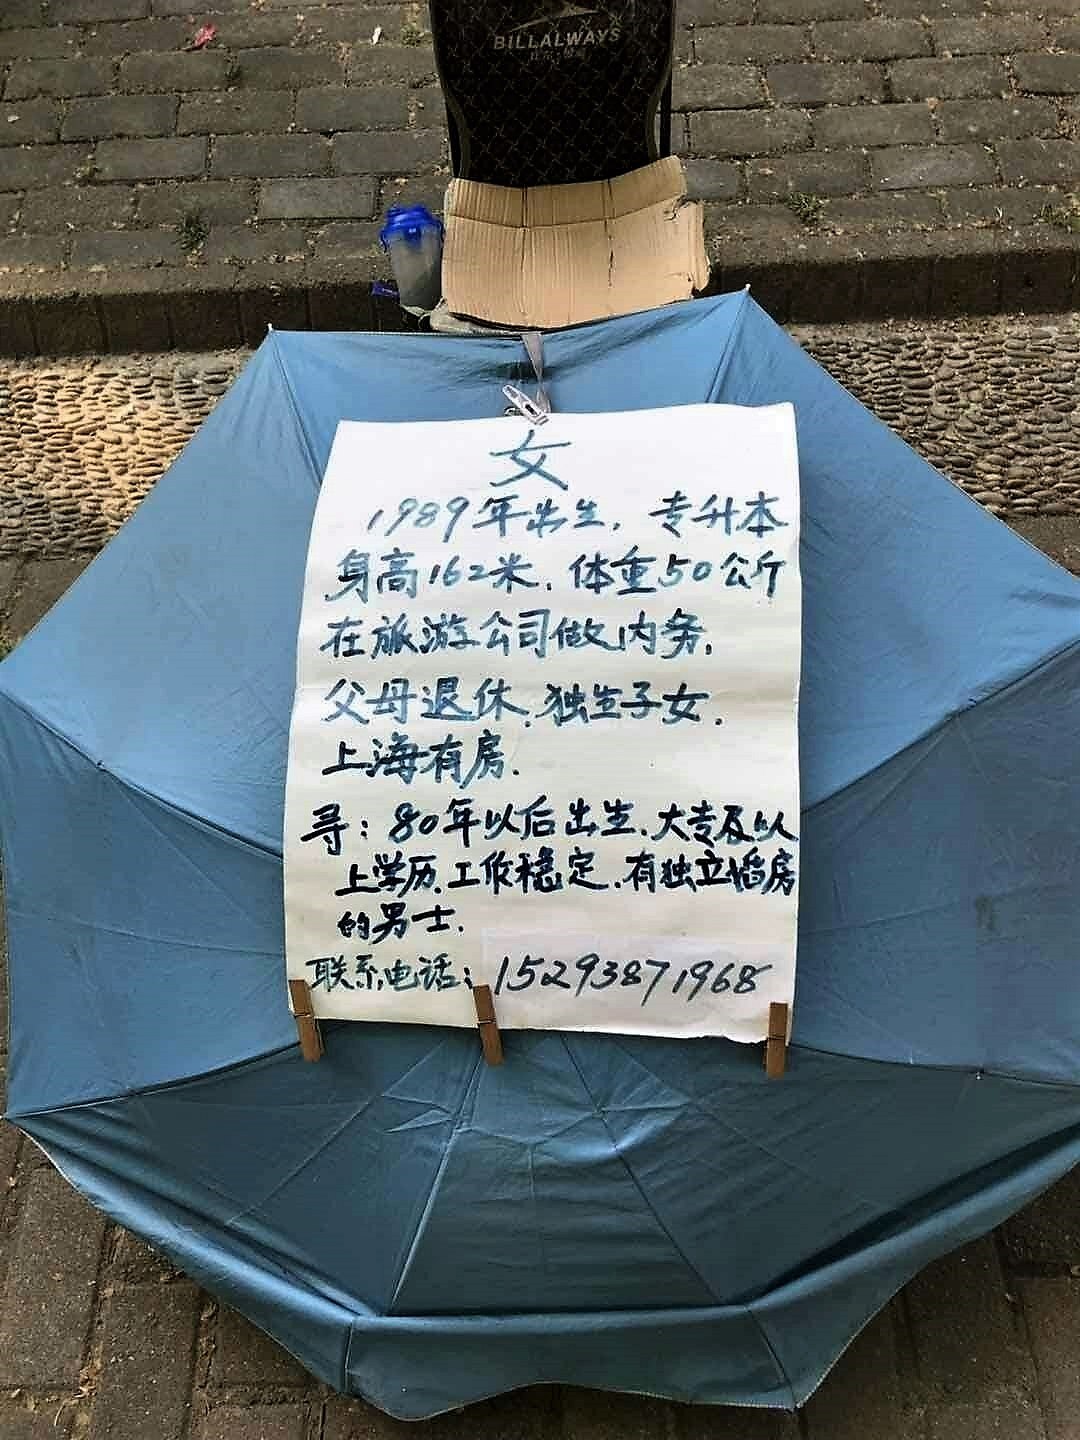 BILLALWAYS
女
1989年出生，专升本
身高162米，体重50公斤
在旅游公司做内务，
父母退休，独生子女，
上海有房．
寻：80年以后出生．大专及以
上学历．工作稳定．有独立婚房
的男士．
联系电话：15293871968